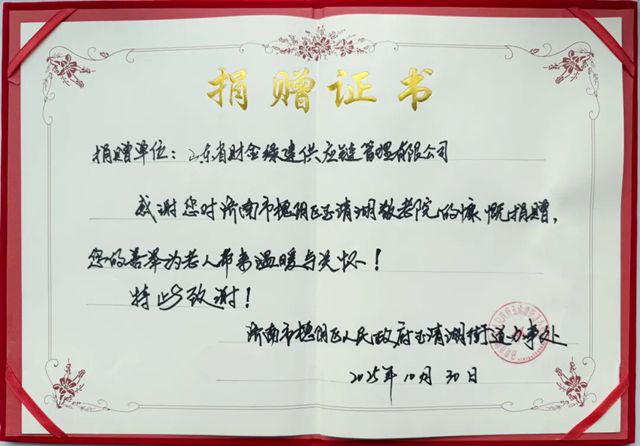 捐赠证书
捐赠单位：山东省财金绿建供应链管理有限公司
感谢您对济南市槐荫区玉清湖敬老院的慷慨捐赠，
您的善举为老人带来温暖与关怀！
特此致谢！
济南市槐荫区人民政府玉清湖街道办事处
2025年10月30日